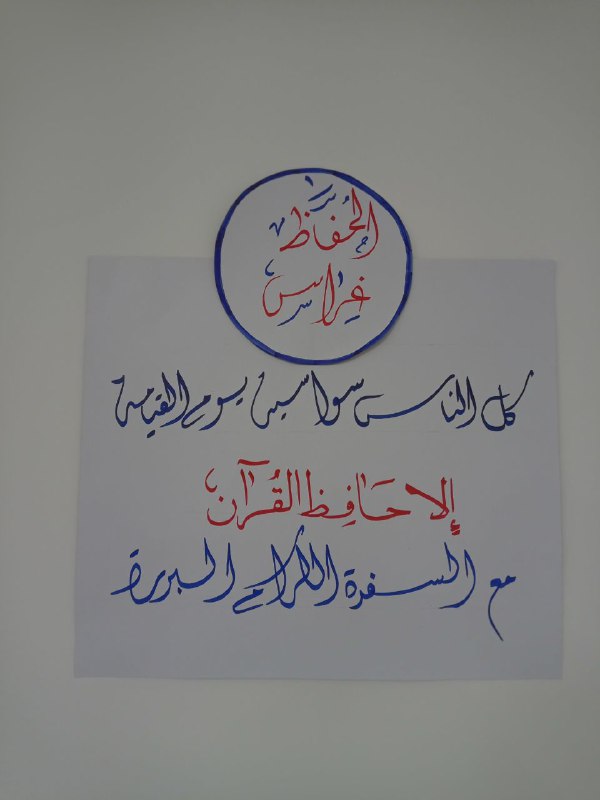 الحُفاظ
غِراس
كل الناس سواسية يوم القيامة
إلا حَافِظ القُرآن
مع السفرة الكرام البررة